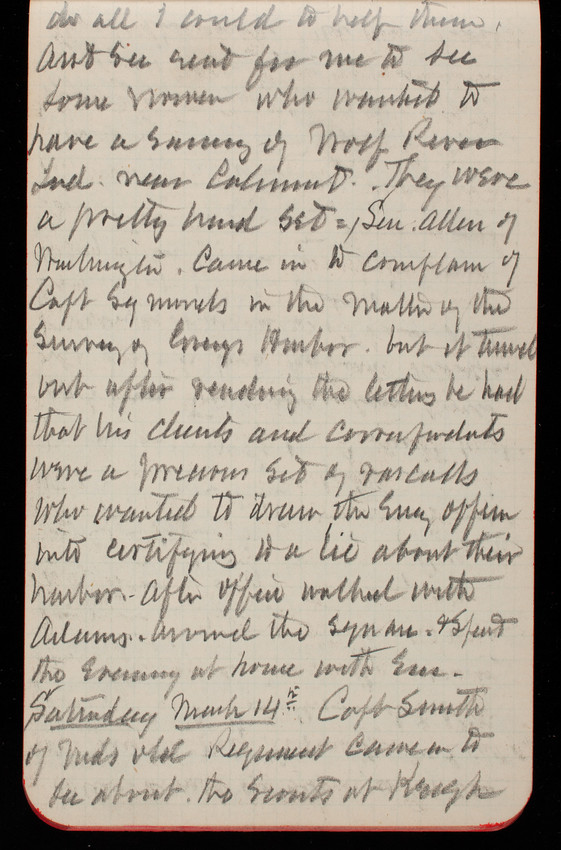 do all I could to help them.
Asst Sec sent for me to see
some women who wanted to
have a survey of Wolf River
Ind. near Calumet. They were
a pretty hard set = Sen. Allen of
Washington. Came in to complain of
Capt Symonds in the matter of the
Survey of Grays Harbor. but it turned
out after reading the letters he had
that his clients and correspondents
were a precious set of rascalls
who wanted to draw the Eng officer
into certifying to a lie about their
harbor. After office walked with
Adams. around the square. & Spent
the Evening at home with Em.
Saturday March 14th. Capt Smith
of old Regiment came in to
see about. the Scouts at Keogh